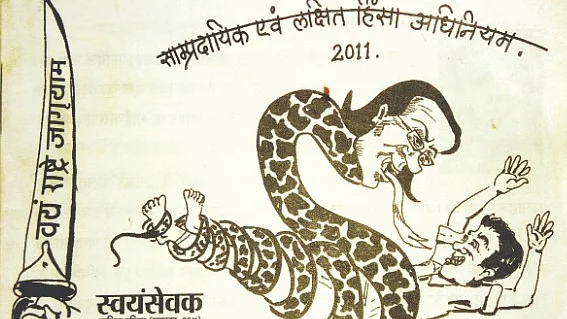 साम्प्रदायिक एवं लक्षित हिंसा अधिनियम.
2011.
वयं राष्ट्रे जागृयाम
स्वयंसेवक